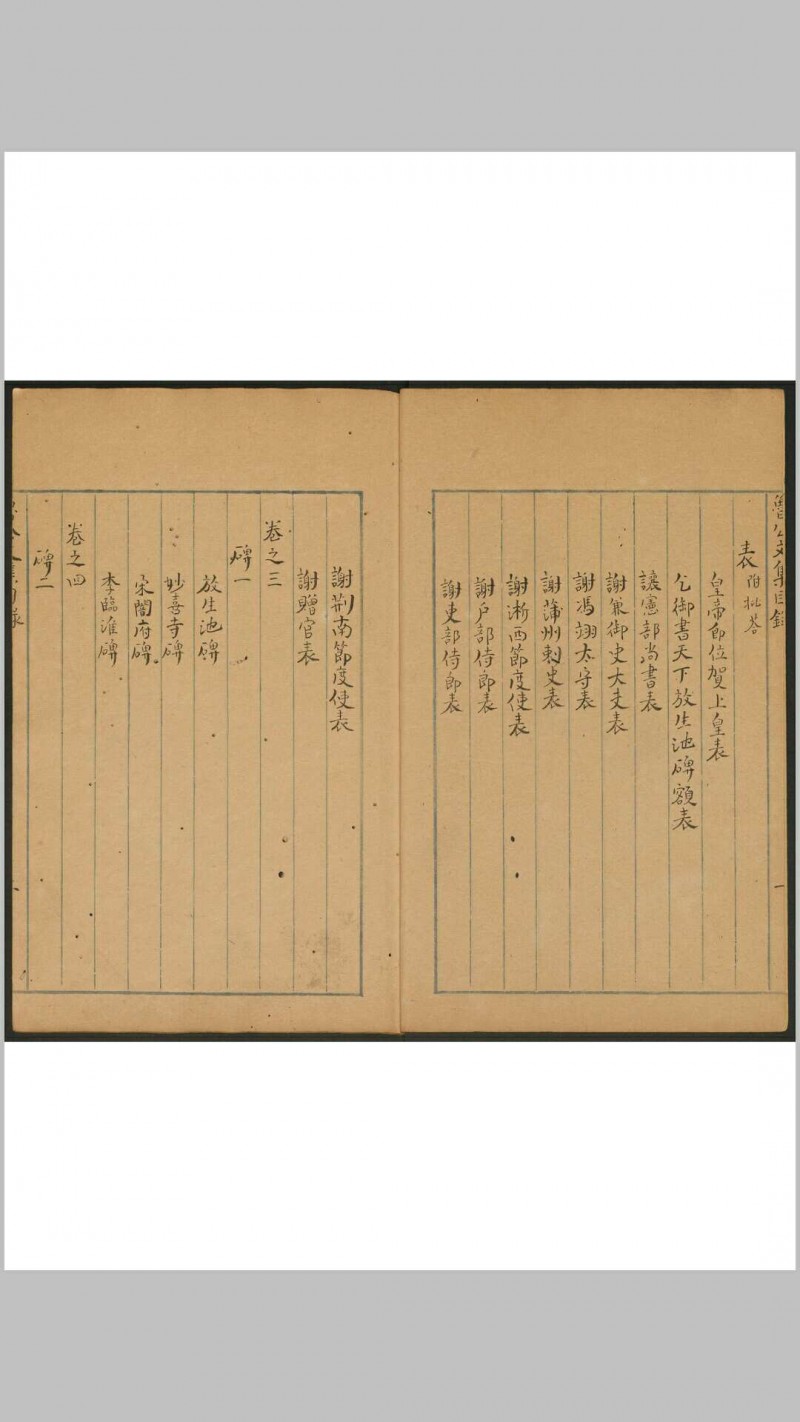 魯公文集目錄
一
表 附批荅
皇帝即位賀上皇表
乞御書天下放生池碑額表
讓憲部尚書表
謝兼御史大夫表
謝馮翊太守表
謝蒲州刺史表
謝淅西節度使表
謝户部侍郎表
謝吏部侍郎表
謝荆南節度使表
謝贈官表
卷之三
碑一
放生池碑
妙喜寺碑
宋開府碑
李臨淮碑
卷之四
碑二